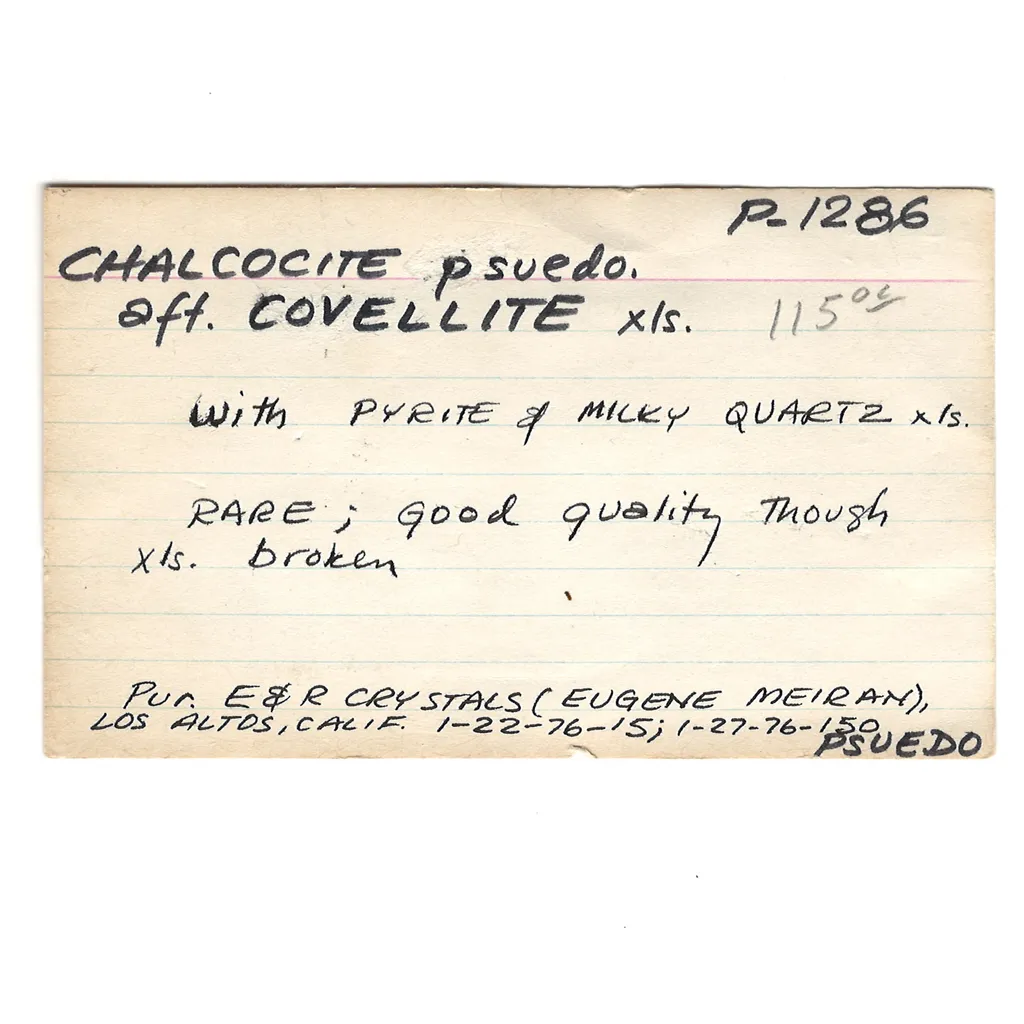 P-1286
CHALCOCITE psuedo.
aft. COVELLITE xls.
115⁰⁰
With PYRITE & MILKY QUARTZ xls.
RARE; good quality Though
xls. broken
Pur. E&R CRYSTALS (EUGENE MEIRAN),
LOS ALTOS, CALIF. 1-22-76-15; 1-27-76-150
PSUEDO